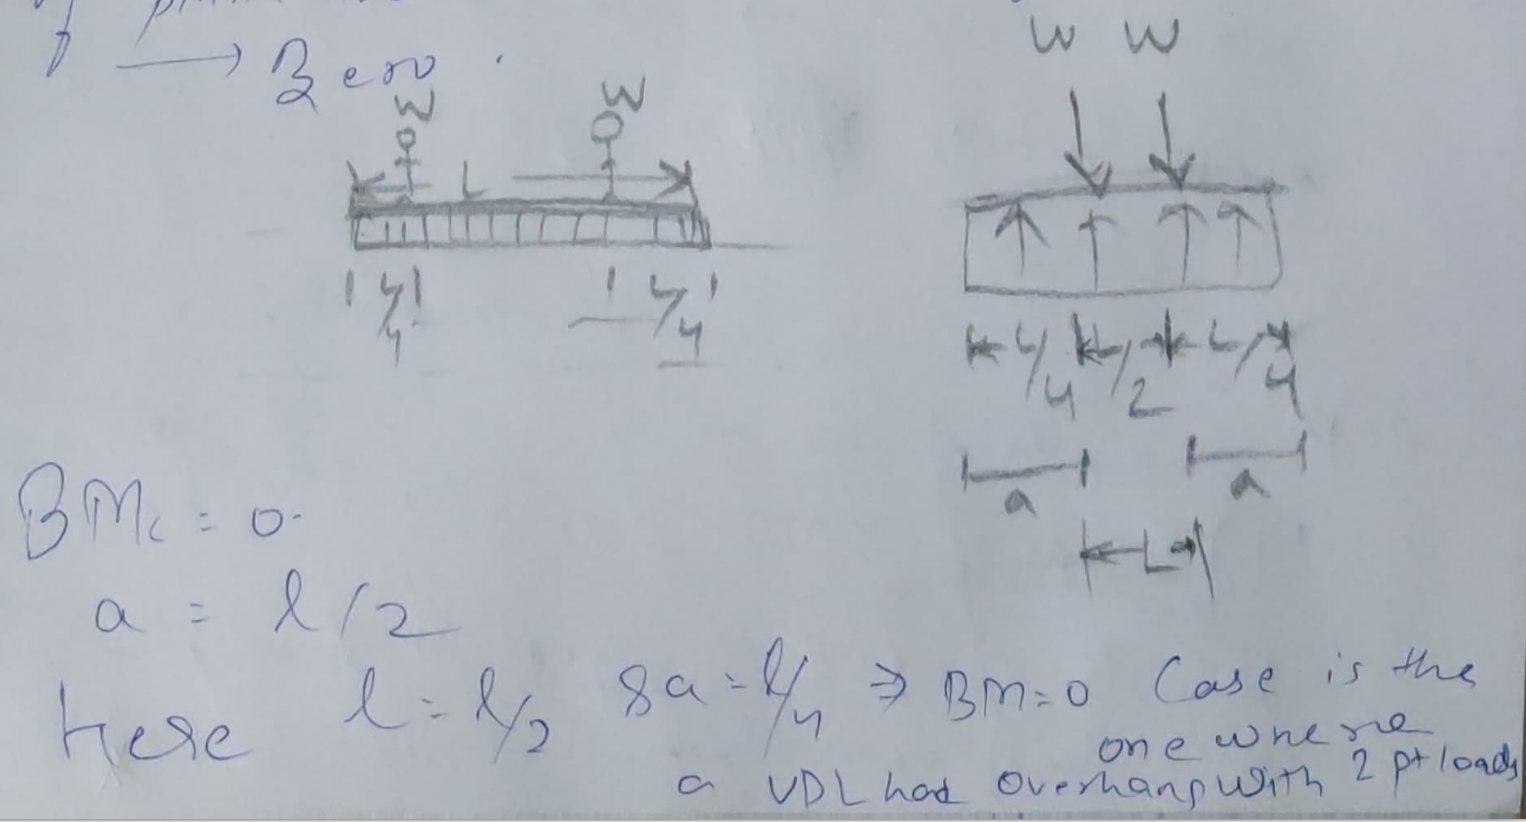 → Zero.
W W
W W
L
L/4 L/4
L/4 L/2 L/4
a a
L
BMc = 0.
a = l/2
here l = l/2 & a = l/4 ⇒ BM=0 Case is the
one where
a UDL had overhang with 2 pt loads